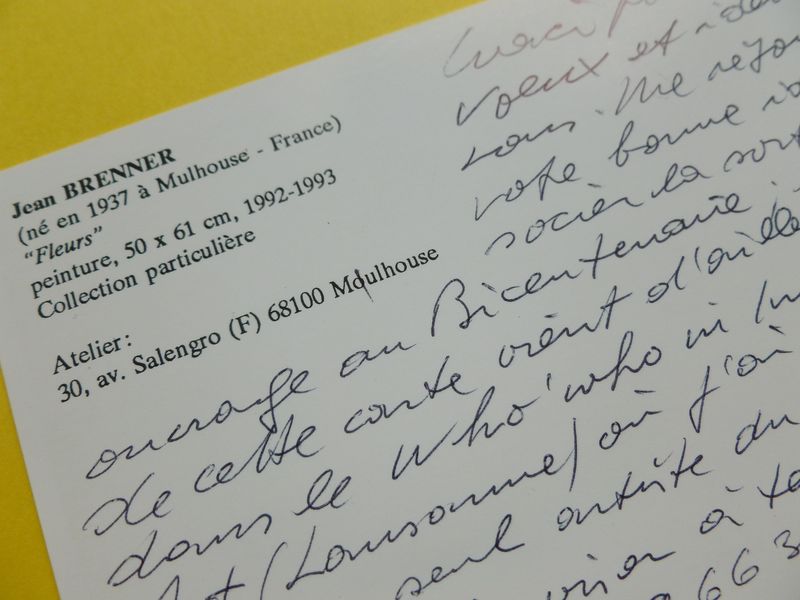 Jean BRENNER
(né en 1937 à Mulhouse - France)
"Fleurs"
peinture, 50 x 61 cm, 1992-1993
Collection particulière
Atelier:
30, av. Salengro (F) 68100 Moulhouse
voeux et
vous. Me
vote bonne
socièr la
ouvrage au Bicentenaire
de cette carte vient d'aille
dans le Who' who in
Art (Lausanne) où j'ai
seul du
à
663